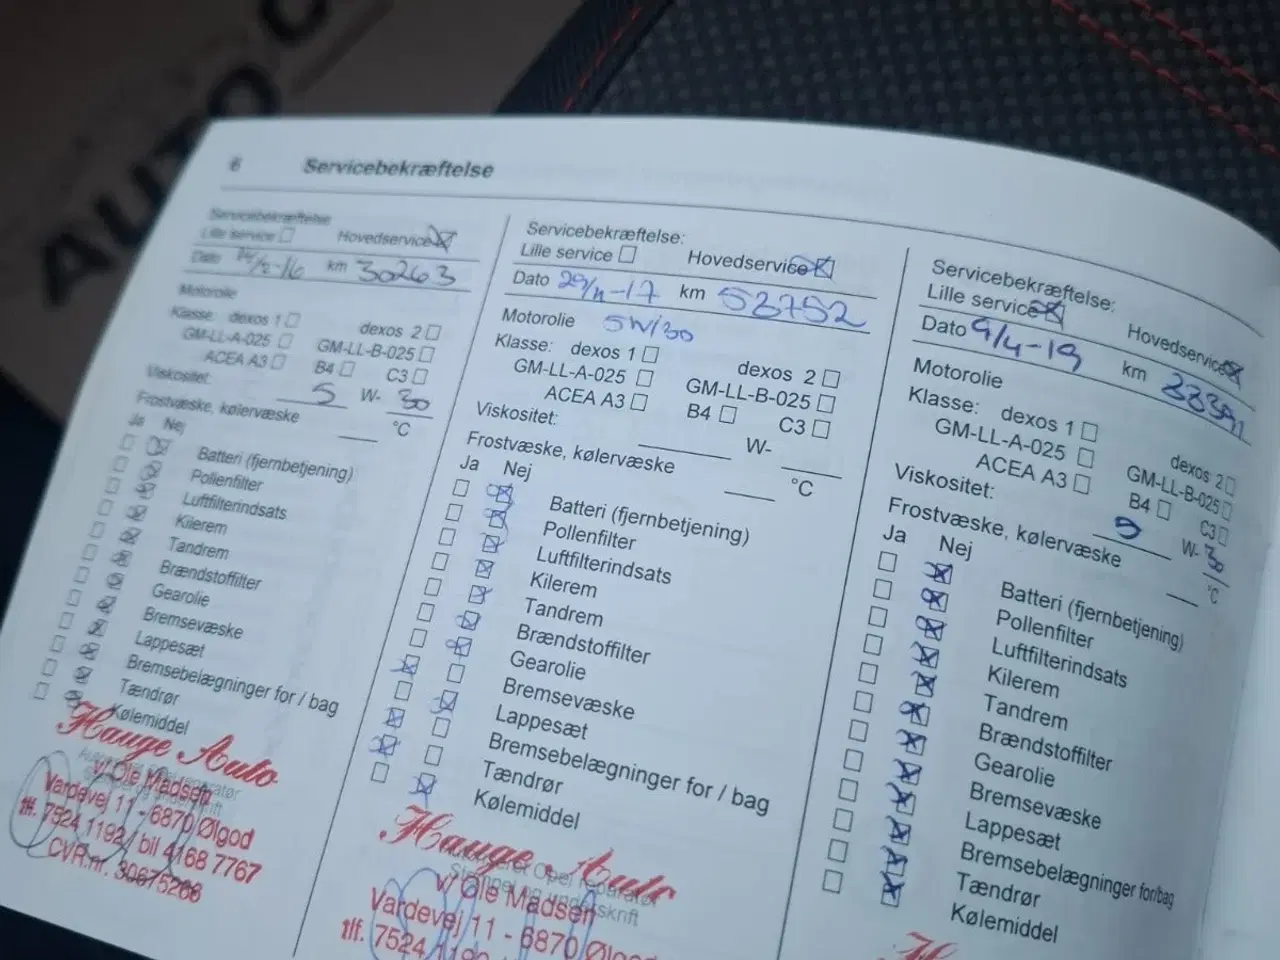 AUTO
6 Servicebekræftelse
Servicebekræftelse
Lille service Hovedservice
Dato -16 km 30263
Motorolie
Klasse: dexos 1 dexos 2
GM-LL-A-025 GM-LL-B-025
ACEA A3 B4 C3
Viskositet: 5 W- 30
Frostvæske, kølervæske °C
Ja Nej
Batteri (fjernbetjening)
Pollenfilter
Luftfilterindsats
Kilerem
Tandrem
Brændstoffilter
Gearolie
Bremsevæske
Lappesæt
Bremsebelægninger for / bag
Tændrør
Kølemiddel
Hauge Auto
v/ Ole Madsen
Vardevej 11 - 6870 Ølgod
tlf. 7524 1192 / bil 4168 7767
CVR.nr. 30675266
Servicebekræftelse:
Lille service Hovedservice
Dato 29/11-17 km 58752
Motorolie 5W/30
Klasse: dexos 1 dexos 2
GM-LL-A-025 GM-LL-B-025
ACEA A3 B4 C3
Viskositet: W-
Frostvæske, kølervæske °C
Ja Nej
Batteri (fjernbetjening)
Pollenfilter
Luftfilterindsats
Kilerem
Tandrem
Brændstoffilter
Gearolie
Bremsevæske
Lappesæt
Bremsebelægninger for / bag
Tændrør
Kølemiddel
Hauge Auto
Autoriseret Opel reparatør
Stempel og underskrift
v/ Ole Madsen
Vardevej 11 - 6870 Ølgod
tlf. 7524
Servicebekræftelse:
Lille service Hovedservice
Dato 9/4-19 km 83391
Motorolie
Klasse: dexos 1 dexos 2
GM-LL-A-025 GM-LL-B-025
ACEA A3 B4 C3
Viskositet: 5 W- 30
Frostvæske, kølervæske °C
Ja Nej
Batteri (fjernbetjening)
Pollenfilter
Luftfilterindsats
Kilerem
Tandrem
Brændstoffilter
Gearolie
Bremsevæske
Lappesæt
Bremsebelægninger for/bag
Tændrør
Kølemiddel